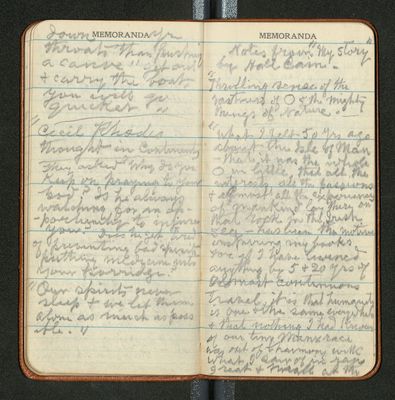 MEMORANDA
down yr
throats than pushing
a canoe
& carry the boat
you will go
quicker "
"Cecil Rhodes
thought in Continents
They asked "Why do you
keep on praying to your
big"? Is he always
watching for an op-
portunity to injure
you"
of preventing bad spirits
putting medicine into
your porridge."
"Our spirits never
sleep & we let them
alone as much as poss
ible. "
MEMORANDA
Notes from "My Story"
by Hall Caine.
"Thrilling sense of the
vastness of O & the mighty
things of Nature."
"What I felt 50 yrs ago
about the Isle of Man
that it was the whole
O in little, that all the
interests all the passions
& almost all the experiences
of mankind were
that rock in the Irish
Sea - has been the motive
inspiring my books
for if I have learned
anything by 5 & 20 yrs of
almost continuous
travel, it is that humanity
is one & the same everywhere
& that nothing I had known
of our tiny Manx race
was out of harmony with
what I saw of
great & small